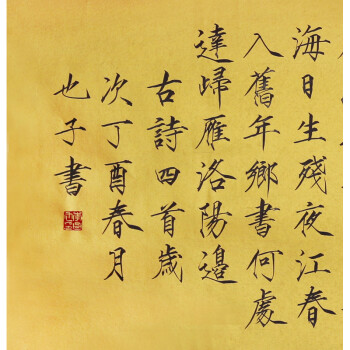 海日生殘夜江春
入舊年鄉書何處
達歸雁洛陽邊
古詩四首歲
次丁酉春月
也子書